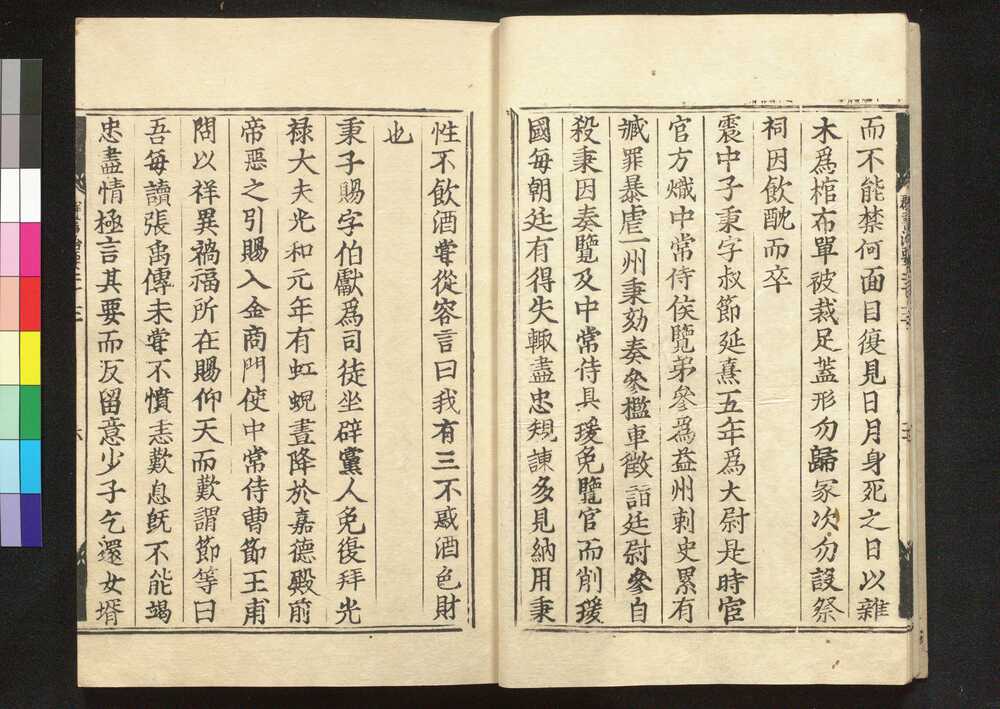 而不能禁何面目復見日月身死之日以雜
木爲棺布單被裁足蓋形勿歸冢次勿設祭
祠因飲酖而卒
震中子秉字叔節延熹五年爲大尉是時宦
官方熾中常侍侯覽弟參爲益州刺史累有
臧罪暴虐一州秉劾奏參檻車徵詣廷尉參自
殺秉因奏覽及中常侍具瑗免覽官而削瑗
國每朝廷有得失輙盡忠規諫多見納用秉
性不飲酒甞從容言曰我有三不惑酒色財
也
秉子賜字伯獻爲司徒坐辟黨人免復拜光
禄大夫光和元年有虹蜺晝降於嘉德殿前
帝惡之引賜入金商門使中常侍曹節王甫
問以祥異禍福所在賜仰天而歎謂節等曰
吾每讀張禹傳未甞不憤恚歎息旣不能竭
忠盡情極言其要而反留意少子乞還女壻